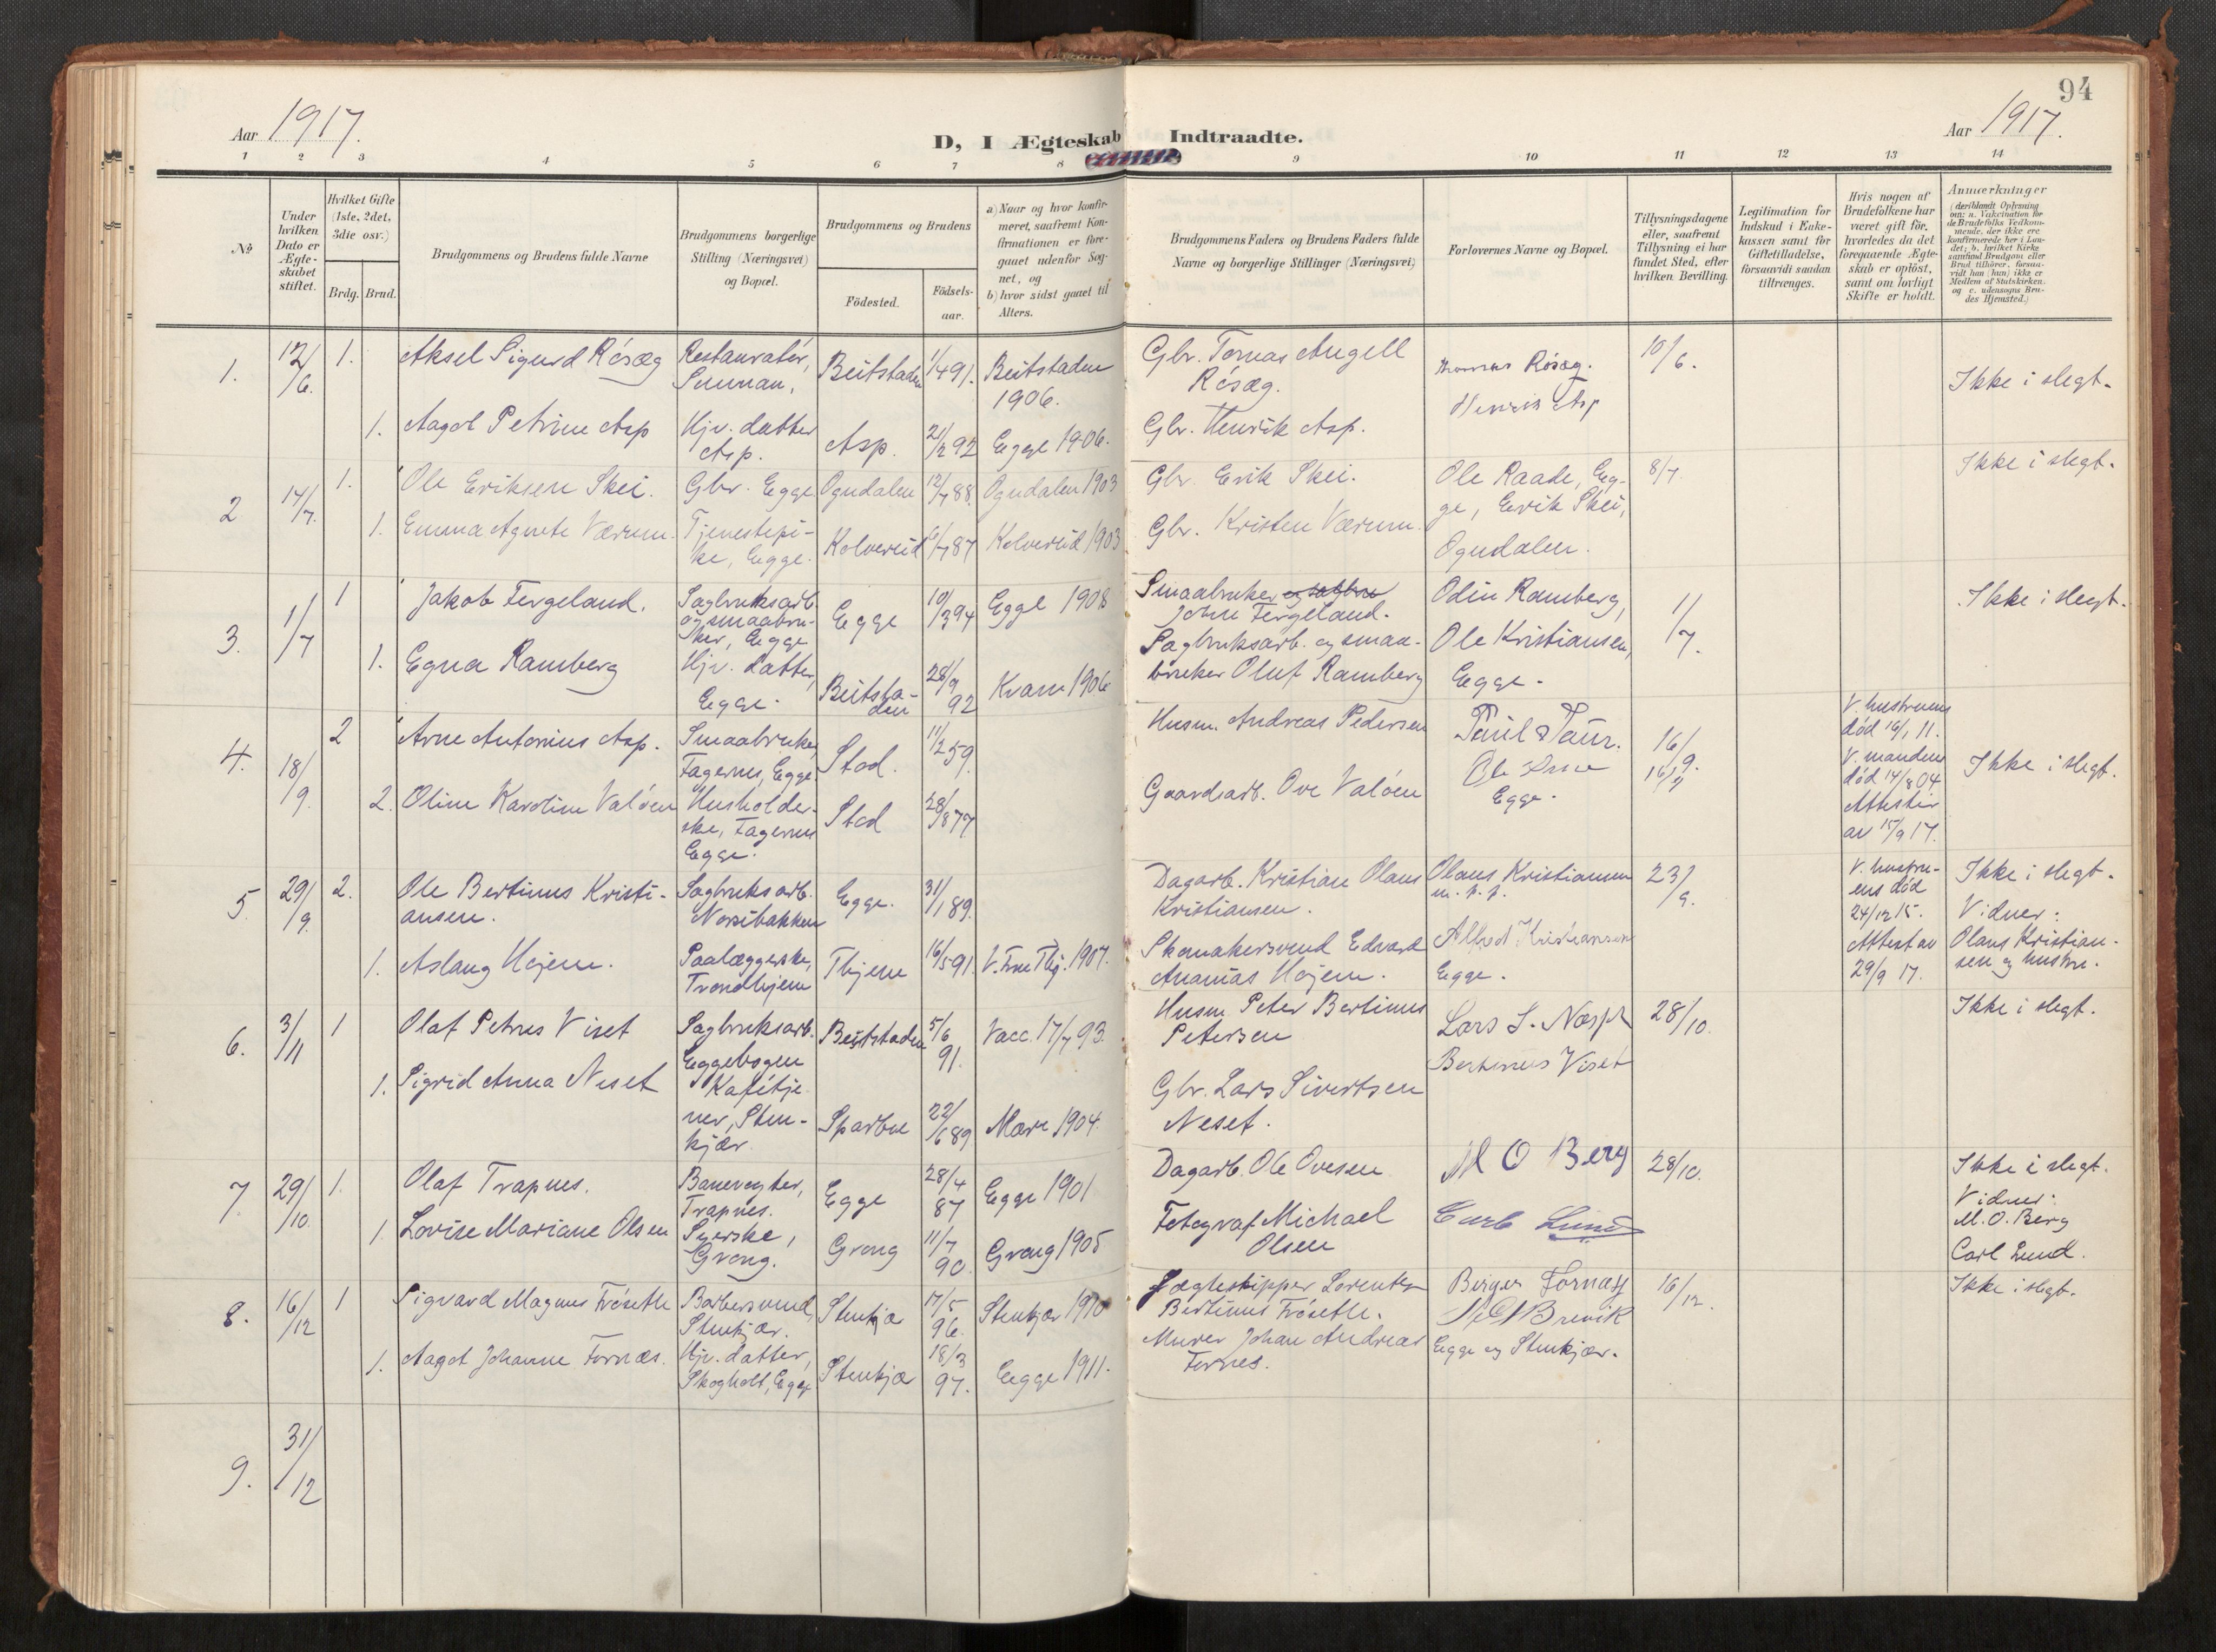 94
Aar 1917.
D, I Ægteskab Indtraadte.
Aar 1917.
1 2 3 4 5 6 7 8 9 10 11 12 13 14
№
Under
hvilken
Dato er
Ægte-
skabet
stiftet.
Hvilket Gifte
(1ste, 2det,
3die osv.)
Brdg. Brud.
Brudgommens og Brudens fulde Navne
Brudgommens borgerlige
Stilling (Næringsvei)
og Bopæl.
Brudgommens og Brudens
Födested.
Födsels-
aar.
a) Naar og hvor konfir-
meret, saafremt Kon-
firmationen er fore-
gaaet udenfor Sog-
net, og
b) hvor sidst gaaet til
Alters.
Brudgommens Faders og Brudens Faders fulde
Navne og borgerlige Stillinger (Næringsvei)
Forlovernes Navne og Bopæl.
Tillysningsdagene
eller, saafremt
Tillysning ei har
fundet Sted, efter
hvilken Bevilling.
Legitimation for
Indskud i Enke-
kassen samt for
Giftetilladelse,
forsaavidt saadan
tiltrænges.
Hvis nogen af
Brudefolkene har
været gift för,
hvorledes da det
foregaaende Ægte-
skab er oplöst,
samt om lovligt
Skifte er holdt.
Anmærkninger
(deriblandt Oplysning
om: a. Vakcination for
de Brudefolks Vedkom-
mende, der ikke ere
konfirmerede her i Lan-
det; b. hvilket Kirke-
samfund Brudgom eller
Brud tilhörer, forsaa-
vidt han (hun) ikke er
Medlem af Statskirken,
og c. udensogns Bru-
des Hjemsted.)
1. 12/6. 1. Aksel Sigurd Rösæg
Restauratör,
Sunnan,
Beitstaden 1/4 91.
Beitstaden
1906.
Gbr. Tomas Angell
Rösæg.
Thomas Rösæg.
Henrik Asp
10/6.
Ikke i slegt.
1. Aagot Petrine Asp
Hjv. datter
Asp.
Asp. 21/2 92 Egge 1906.
Gbr. Henrik Asp.
2 14/7. 1. Ole Eriksen Skei.
Gbr. Egge Ogndalen 12/7 88. Ogndalen 1903
Gbr. Erik Skei.
Ole Raade, Eg-
ge, Erik Skei,
Ogndalen.
8/7.
Ikke i slegt.
1. Emma Agnete Værum.
Tjenestepi-
ke, Egge.
Kolvereid 6/7 87 Kolvereid 1903
Gbr. Kristen Værum.
3. 1/7 1 Jakob Fergeland.
Sagbruksarb.
og smaabru-
ker, Egge
Egge 10/3 94 Egge 1908
Smaabruker og sagbru
John Fergeland.
Odin Ramberg,
Ole Kristiansen,
Egge.
1/7.
Ikke i slegt.
1. Egna Ramberg
Hjv. datter,
Egge.
Beitsta-
den
28/9
92
Kvam 1906
Sagbruksarb. og smaa-
bruker Oluf Ramberg
4. 18/9. 2 Arne Antonius Asp.
Smaabruker,
Fagernes, Egge.
Stod. 11/2 59.
Husm. Andreas Pedersen
Egge.
16/9.
16/9
V. hustruens
død 16/1 11.
V. mandens
død 14/8 04
Attester
av 15/9 17.
Ikke i slegt.
2. Oline Karoline Valöen
Husholder-
ske, Fagernes
Egge.
Stod 28/8 77
Gaardsarb. Ove Valöen
5. 29/9. 2. Ole Bertinus Kristi-
ansen.
Sagbruksarb.
Egge. 31/1 89.
Dagarb. Kristian Olaus
Kristiansen.
Olaus Kristiansen
m. p. p.
Alfred Kristiansen
Egge.
23/9.
V. hustru-
ens død
24/12 15.
Attest av
29/9 17.
Ikke i slegt.
Vidner:
Olaus Kristian-
sen og hustru.
1. Aslaug Hojem.
Paalæggerske,
Trondhjem
Thjem 16/5 91. V. Frue Thj. 1907.
Skomakersvend Edvard
Ananias Hojem.
6. 3/11 1 Olaf Petrus Viset
Sagbruksarb.
Eggebogen
Beitstaden 5/6
91.
Vacc. 17/7 93.
Husm. Peter Bertinus
Petersen
Bertinus Viset
28/10.
Ikke i slegt.
1. Sigrid Anna Neset
Kafétje-
ner, Sten-
kjær.
Sparbu 22/6 89 Mære 1904.
Gbr. Lars Sivertsen
Neset.
7. 29/10. 1. Olaf Trapnes.
Banevogter,
Trapnes.
Egge 28/4
87
Egge 1901
Dagarb. Ole Ovesen
M O Berg
Carl Lund
28/10.
Ikke i slegt.
Vidner:
M. O. Berg
Carl Lund.
1. Lovise Mariane Olsen
Syerske,
Grong.
Grong 11/7
90.
Grong 1905
Fotograf Michael
Olsen
8. 16/12 1 Sigvard Magnus Fröseth
Barbersvend,
Stenkjær.
Stenkjær 17/5
96.
Stenkjær 1910
Jægteskipper Lorents
Bertinus Fröseth.
Birger Fornæs
Brevik
Egge og Stenkjær.
16/12.
Ikke i slegt.
1. Aagot Johanne Fornæs.
Hjv. datter,
Skogholt, Egge
Stenkjær 18/3
97.
Egge 1911.
Murer Johan Andreas
Fornes.
9. 31/12